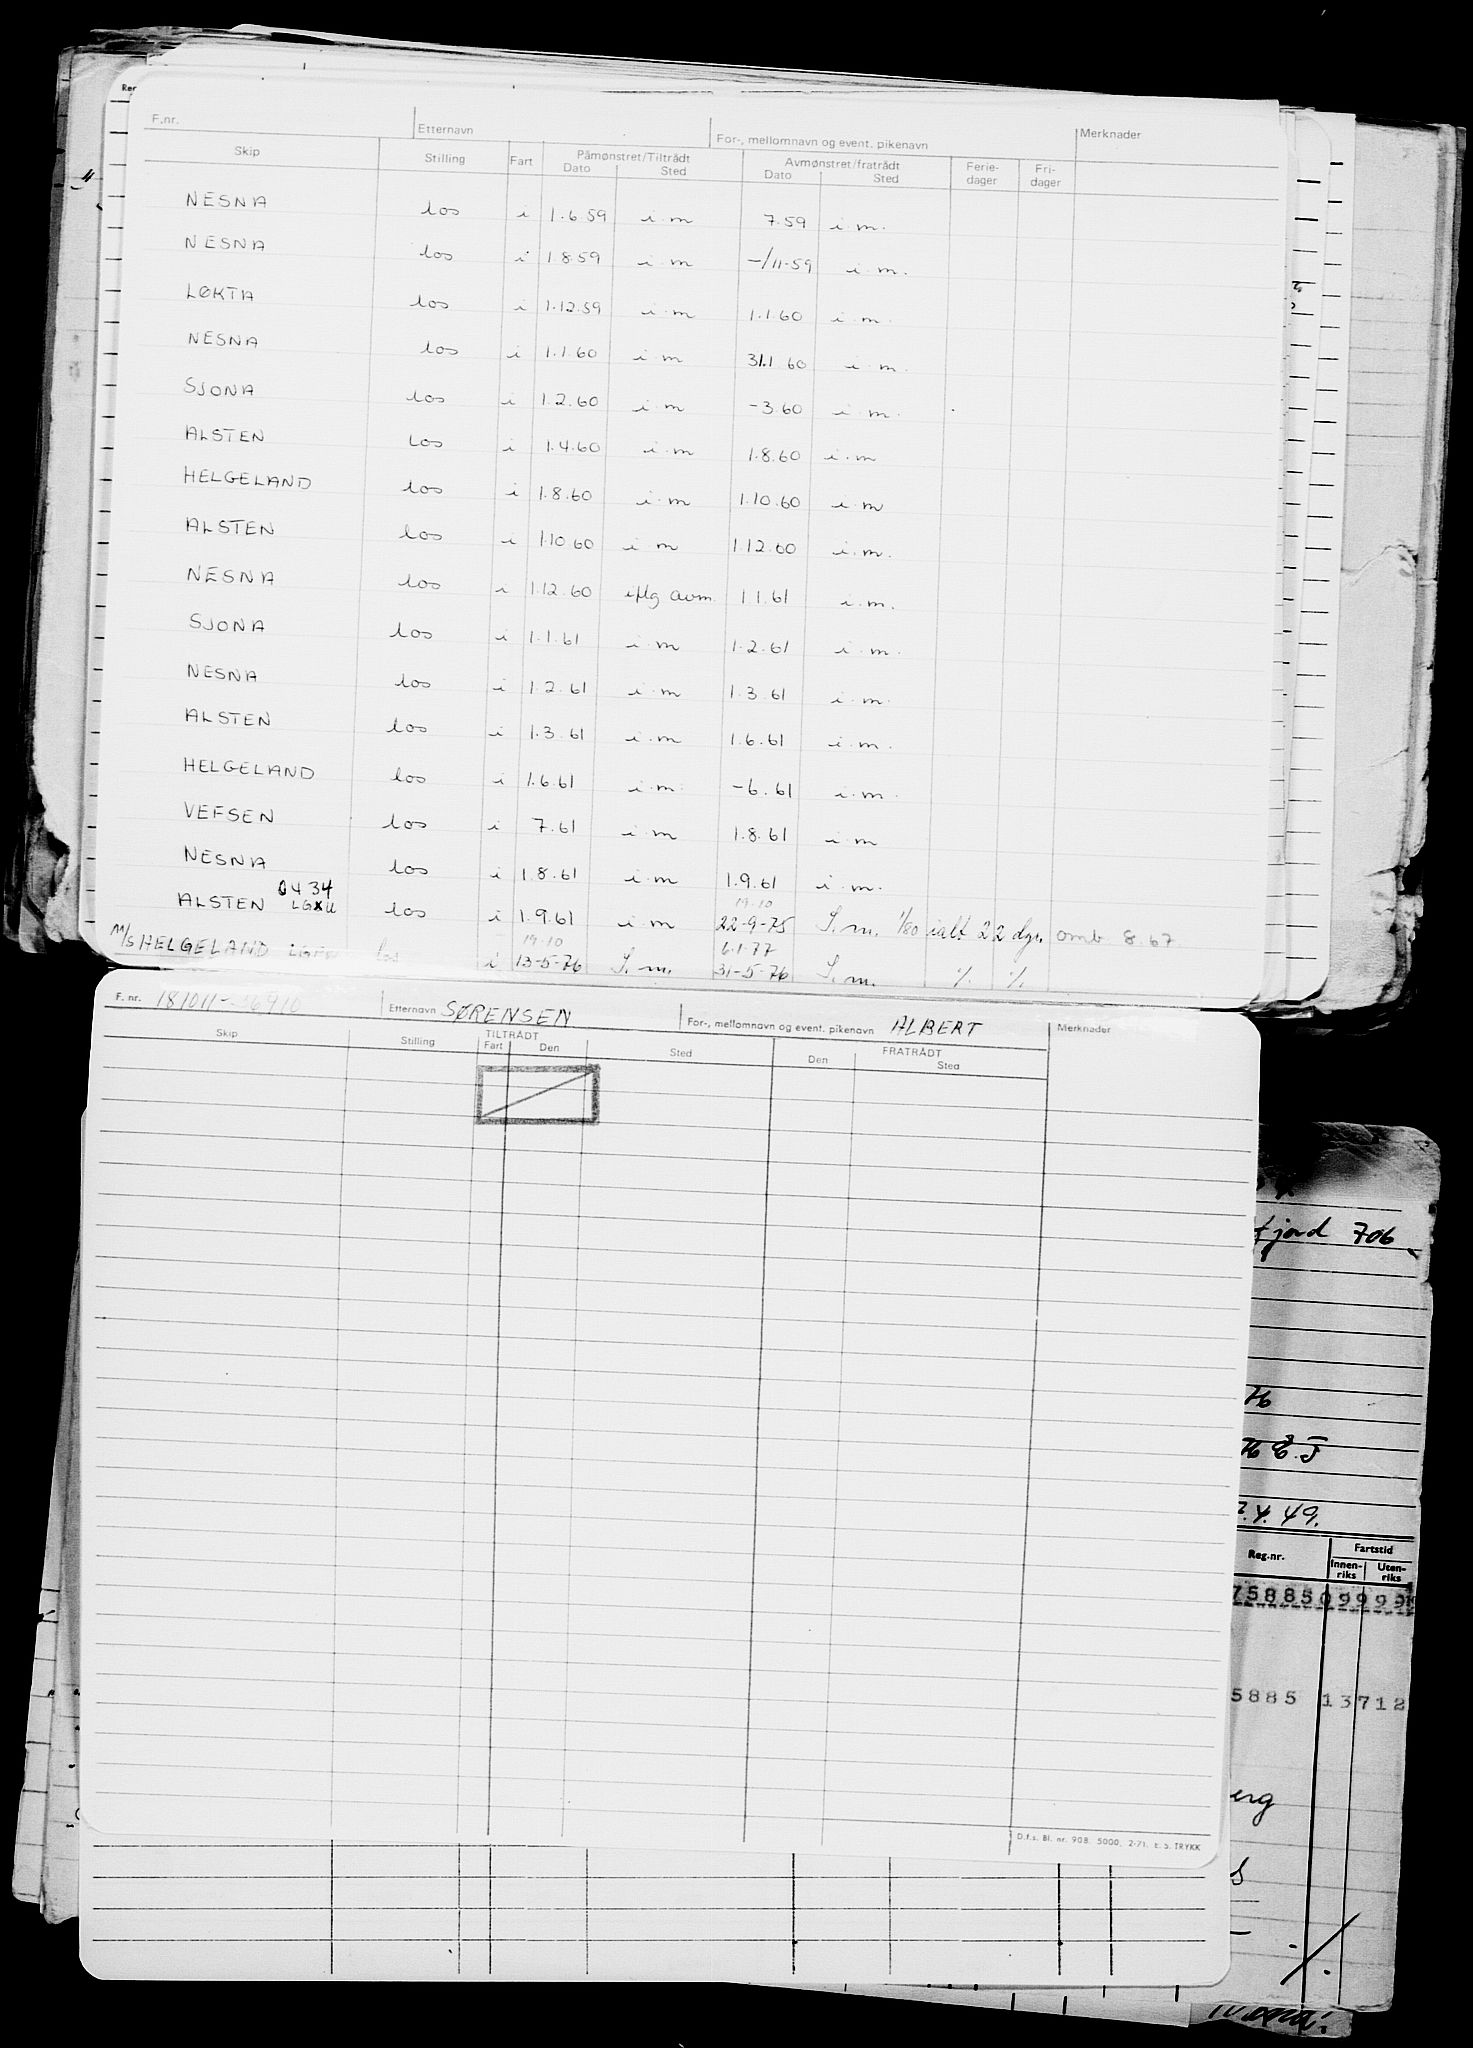 F.nr. Etternavn For-, mellomnavn og event. pikenavn Merknader
Skip Stilling Fart Påmønstret/Tiltrådt Avmønstret/fratrådt Ferie-dager Fri-dager
Dato Sted Dato Sted
NESNA los i 1.6.59 i.m 7.59 i.m.
NESNA los i 1.8.59 i.m -/11-59 i.m.
LØKTA los i 1.12.59 i.m 1.1.60 i.m.
NESNA los i 1.1.60 i.m 31.1 60 i.m.
SJONA los i 1.2.60 i.m -3.60 i.m.
ALSTEN los i 1.4.60 i.m 1.8.60 i.m
HELGELAND los i 1.8.60 i.m 1.10.60 i.m
ALSTEN los i 1.10.60 i m 1.12.60 i.m.
NESNA los i 1.12.60 iflg avm. 1.1.61 i.m.
SJONA los i 1.1.61 i.m 1.2.61 i.m.
NESNA los i 1.2.61 i.m 1.3.61 i.m.
ALSTEN los i 1.3.61 i.m 1.6.61 i.m.
HELGELAND los i 1.6.61 i.m. -6.61 i.m.
VEFSEN los i 7.61 i.m 1.8.61 i.m
NESNA los i 1.8.61 i.m 1.9.61 i.m.
0434 19.10
ALSTEN LGXU los i 1.9.61 i.m 22-9-75 S.m. 1/80 ialt 22 dgr. omb. 8.67
19.10 6.1.77
M/S HELGELAND los i 13-5-76 S.m. 31-5-76 S.m. % %
F. nr. 181011- Etternavn SØRENSEN For-, mellomnavn og event. pikenavn ALBERT Merknader
Skip Stilling TILTRÅDT FRATRÅDT
Fart Den Sted Den Sted
fjord 706
Reg.nr. Fartstid
Innen-riks Uten-riks
5885 13712
D.f.s. Bl. nr. 908. 5000. 2-71. E. S. TRYKK